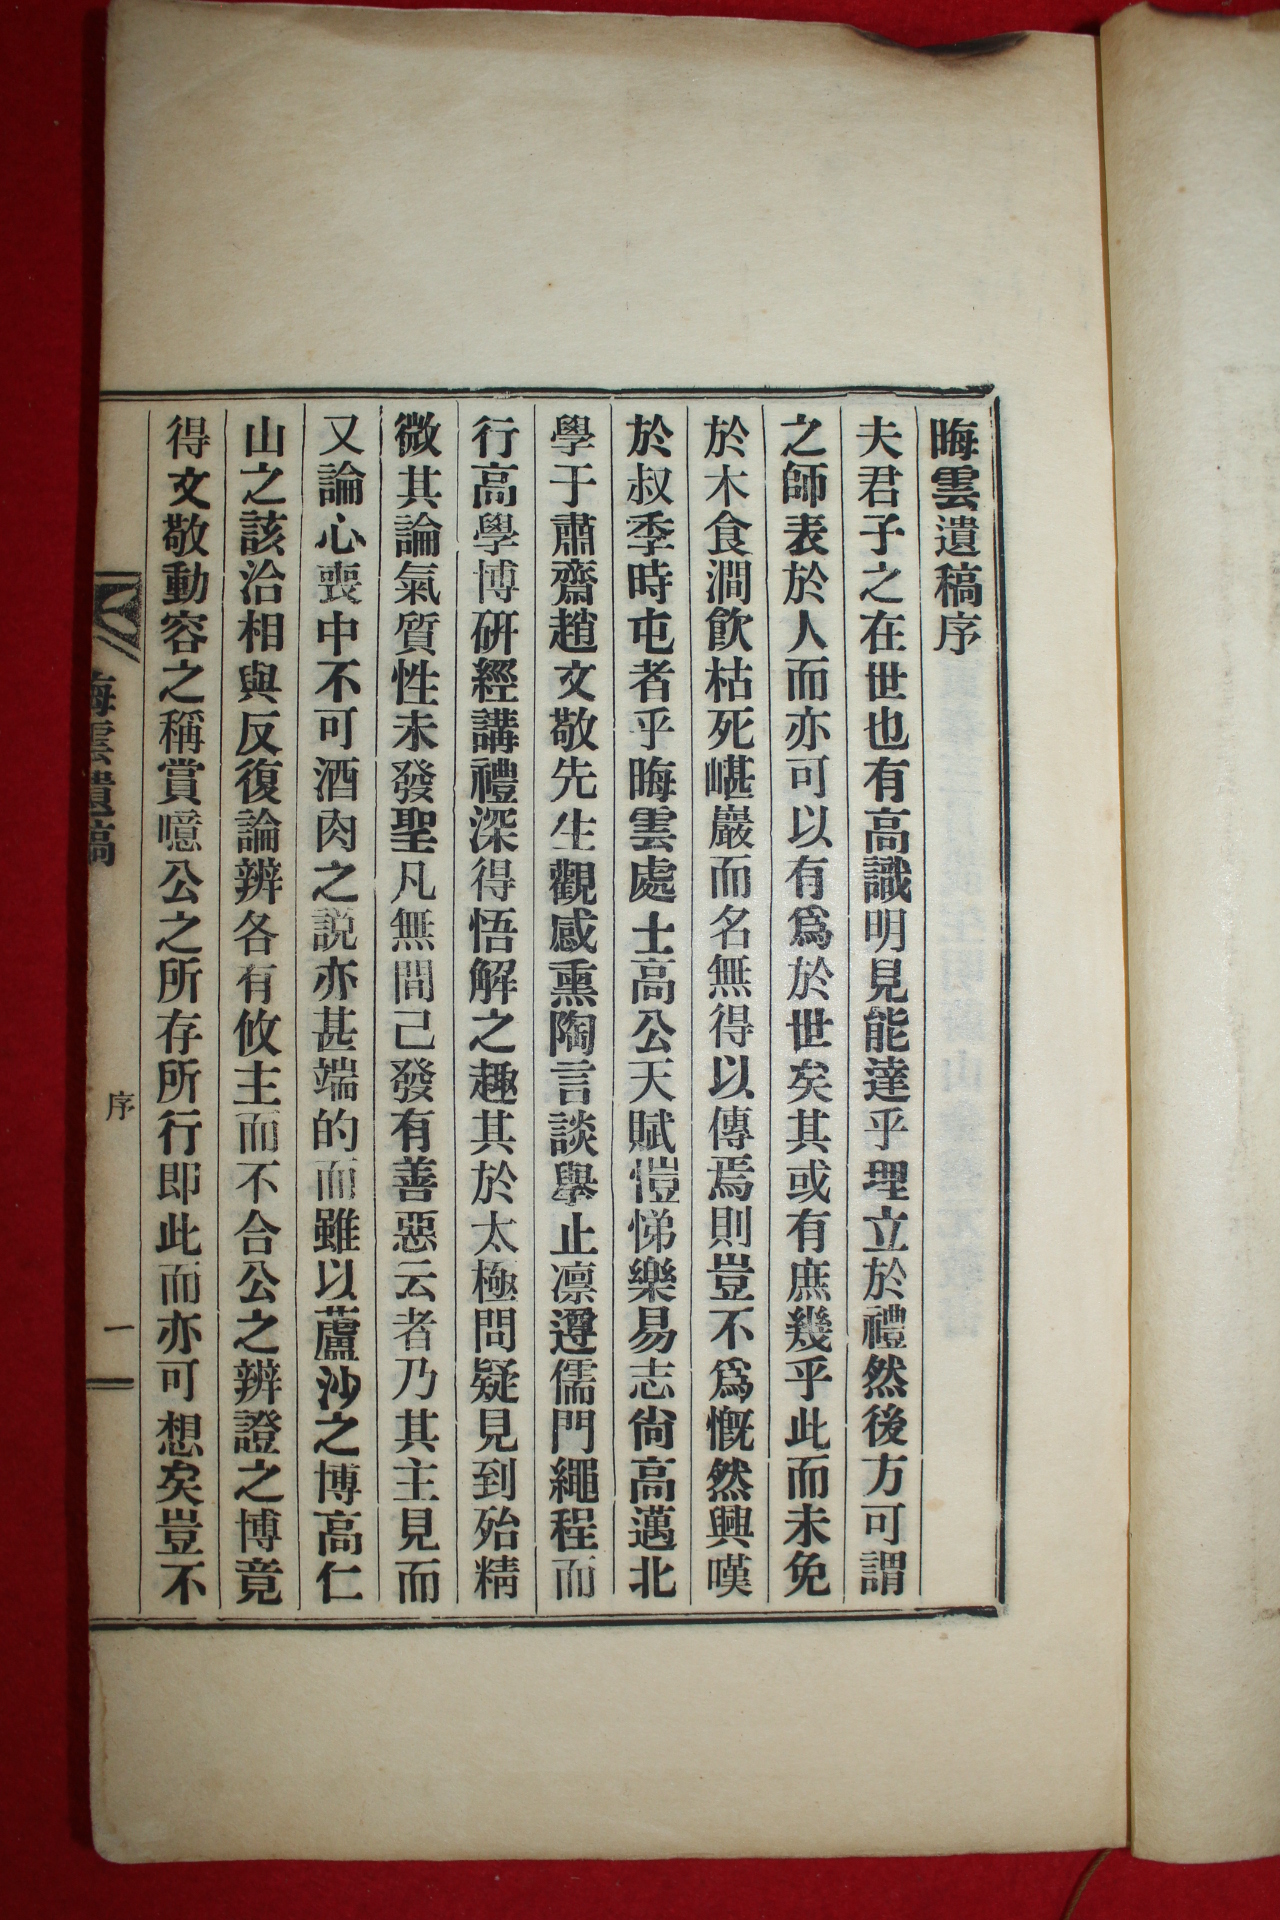 晦雲遺稿序
夫君子之在世也有高識明見能達乎理立於禮然後方可謂
之師表於人而亦可以有爲於世矣其或有庶幾乎此而未免
於木食澗飮枯死嵁巖而名無得以傳焉則豈不爲慨然興嘆
於叔季時屯者乎晦雲處士高公天賦愷悌樂易志尙高邁北
學于肅齋趙文敬先生觀感熏陶言談擧止凛遵儒門繩程而
行高學博硏經講禮深得悟解之趣其於太極問疑見到殆精
微其論氣質性未發聖凡無間己發有善惡云者乃其主見而
又論心喪中不可酒肉之説亦甚端的而雖以蘆沙之博高仁
山之該洽相與反復論辨各有攸主而不合公之辨證之博竟
得文敬動容之稱賞噫公之所存所行即此而亦可想矣豈不
晦雲遺稿
序
一